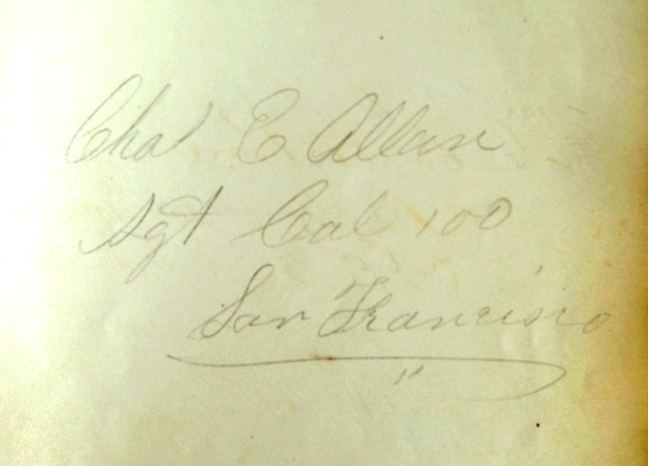 Chas E Allen
Sgt Cal 100
San Francisco